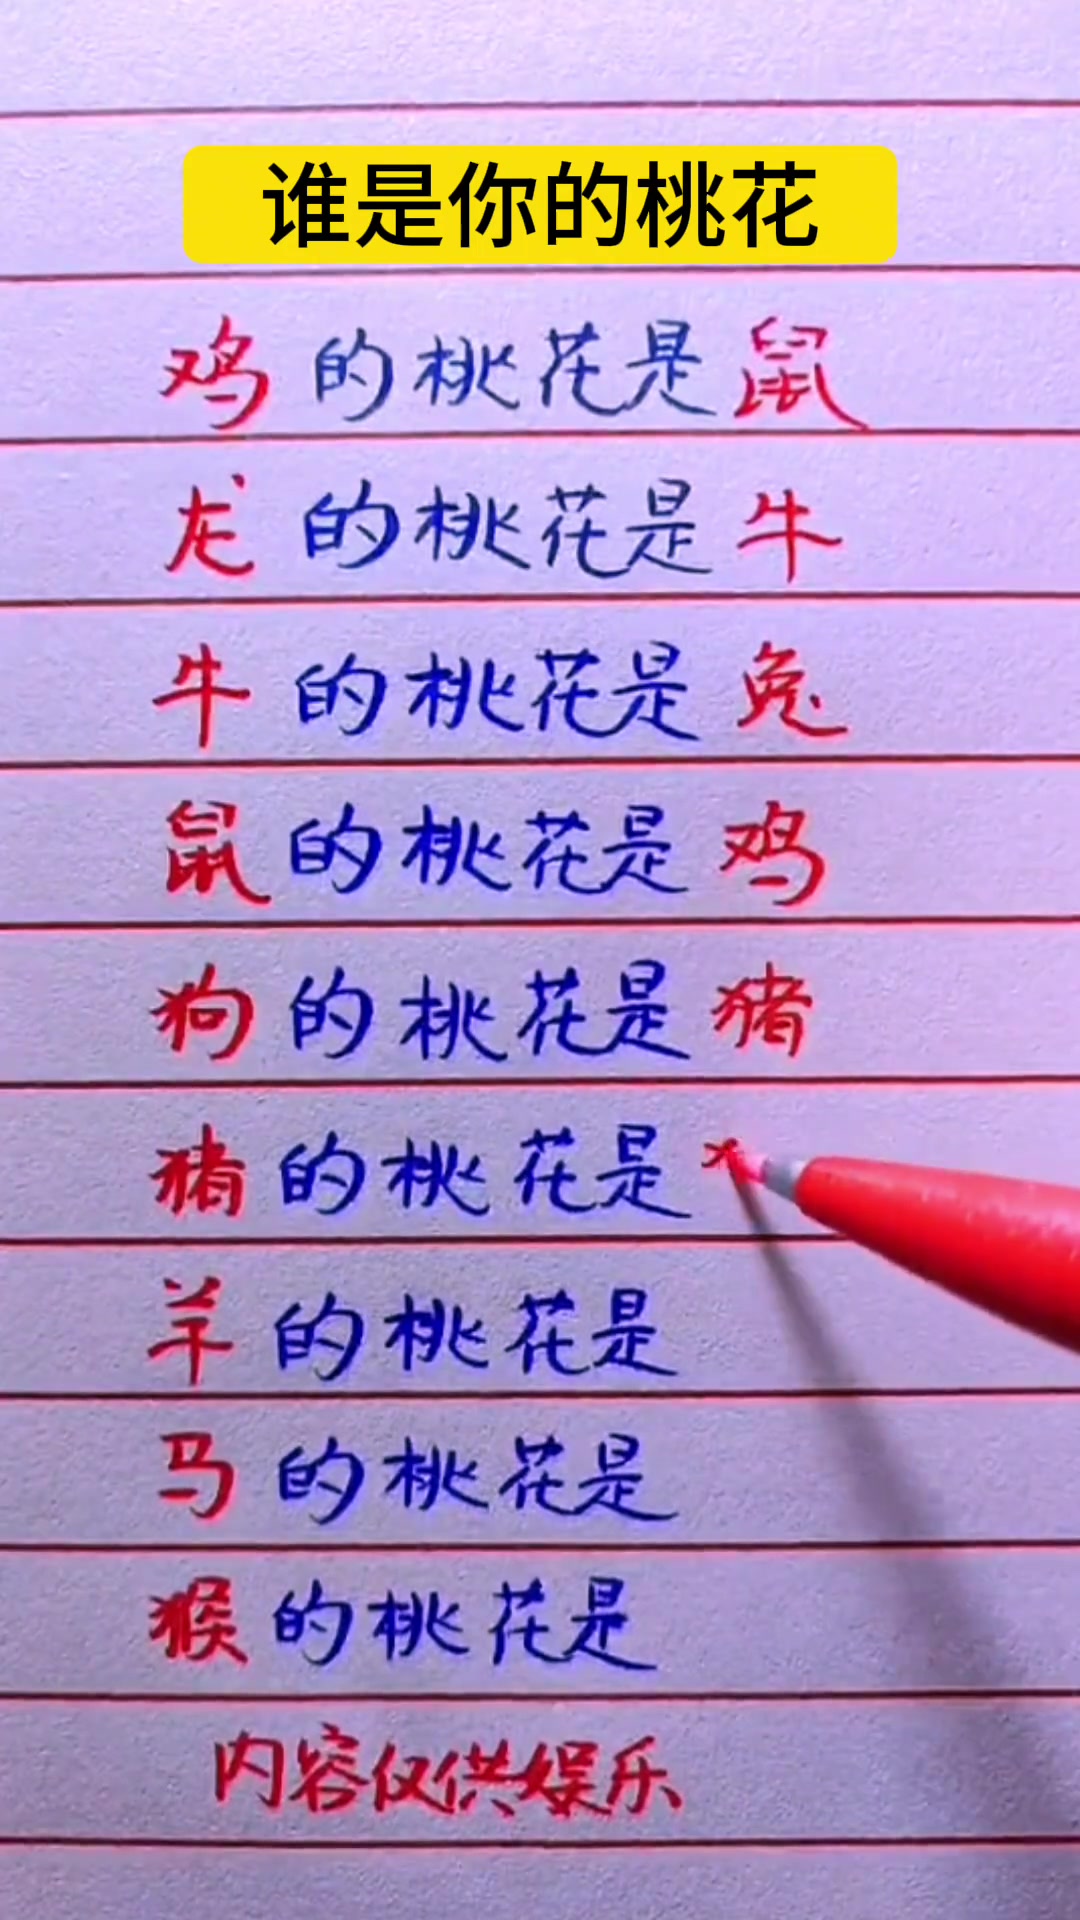 谁是你的桃花
鸡的桃花是鼠
龙的桃花是牛
牛的桃花是兔
鼠的桃花是鸡
狗的桃花是猪
猪的桃花是
羊的桃花是
马的桃花是
猴的桃花是
内容仅供娱乐